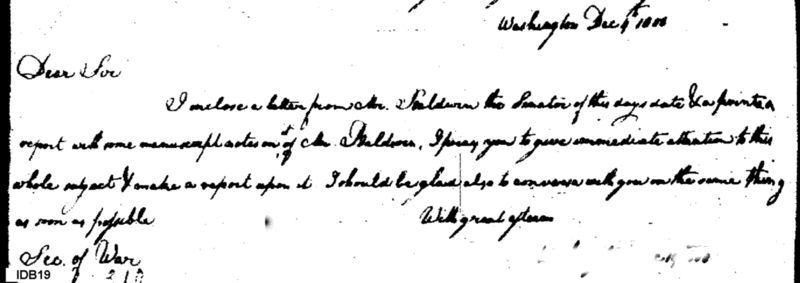 Washington Dec 4th 1800
Dear Sir
I inclose a letter from Mr. Baldwin the Senator of this days date & a printed
report with some manuscript notes on it of Mr. Baldwin, I pray you to give immediate attention to this
whole subject & make a report upon it I should be glad also to converse with you on the same thing
as soon as possible With great esteem
Sec. of War
IDB19